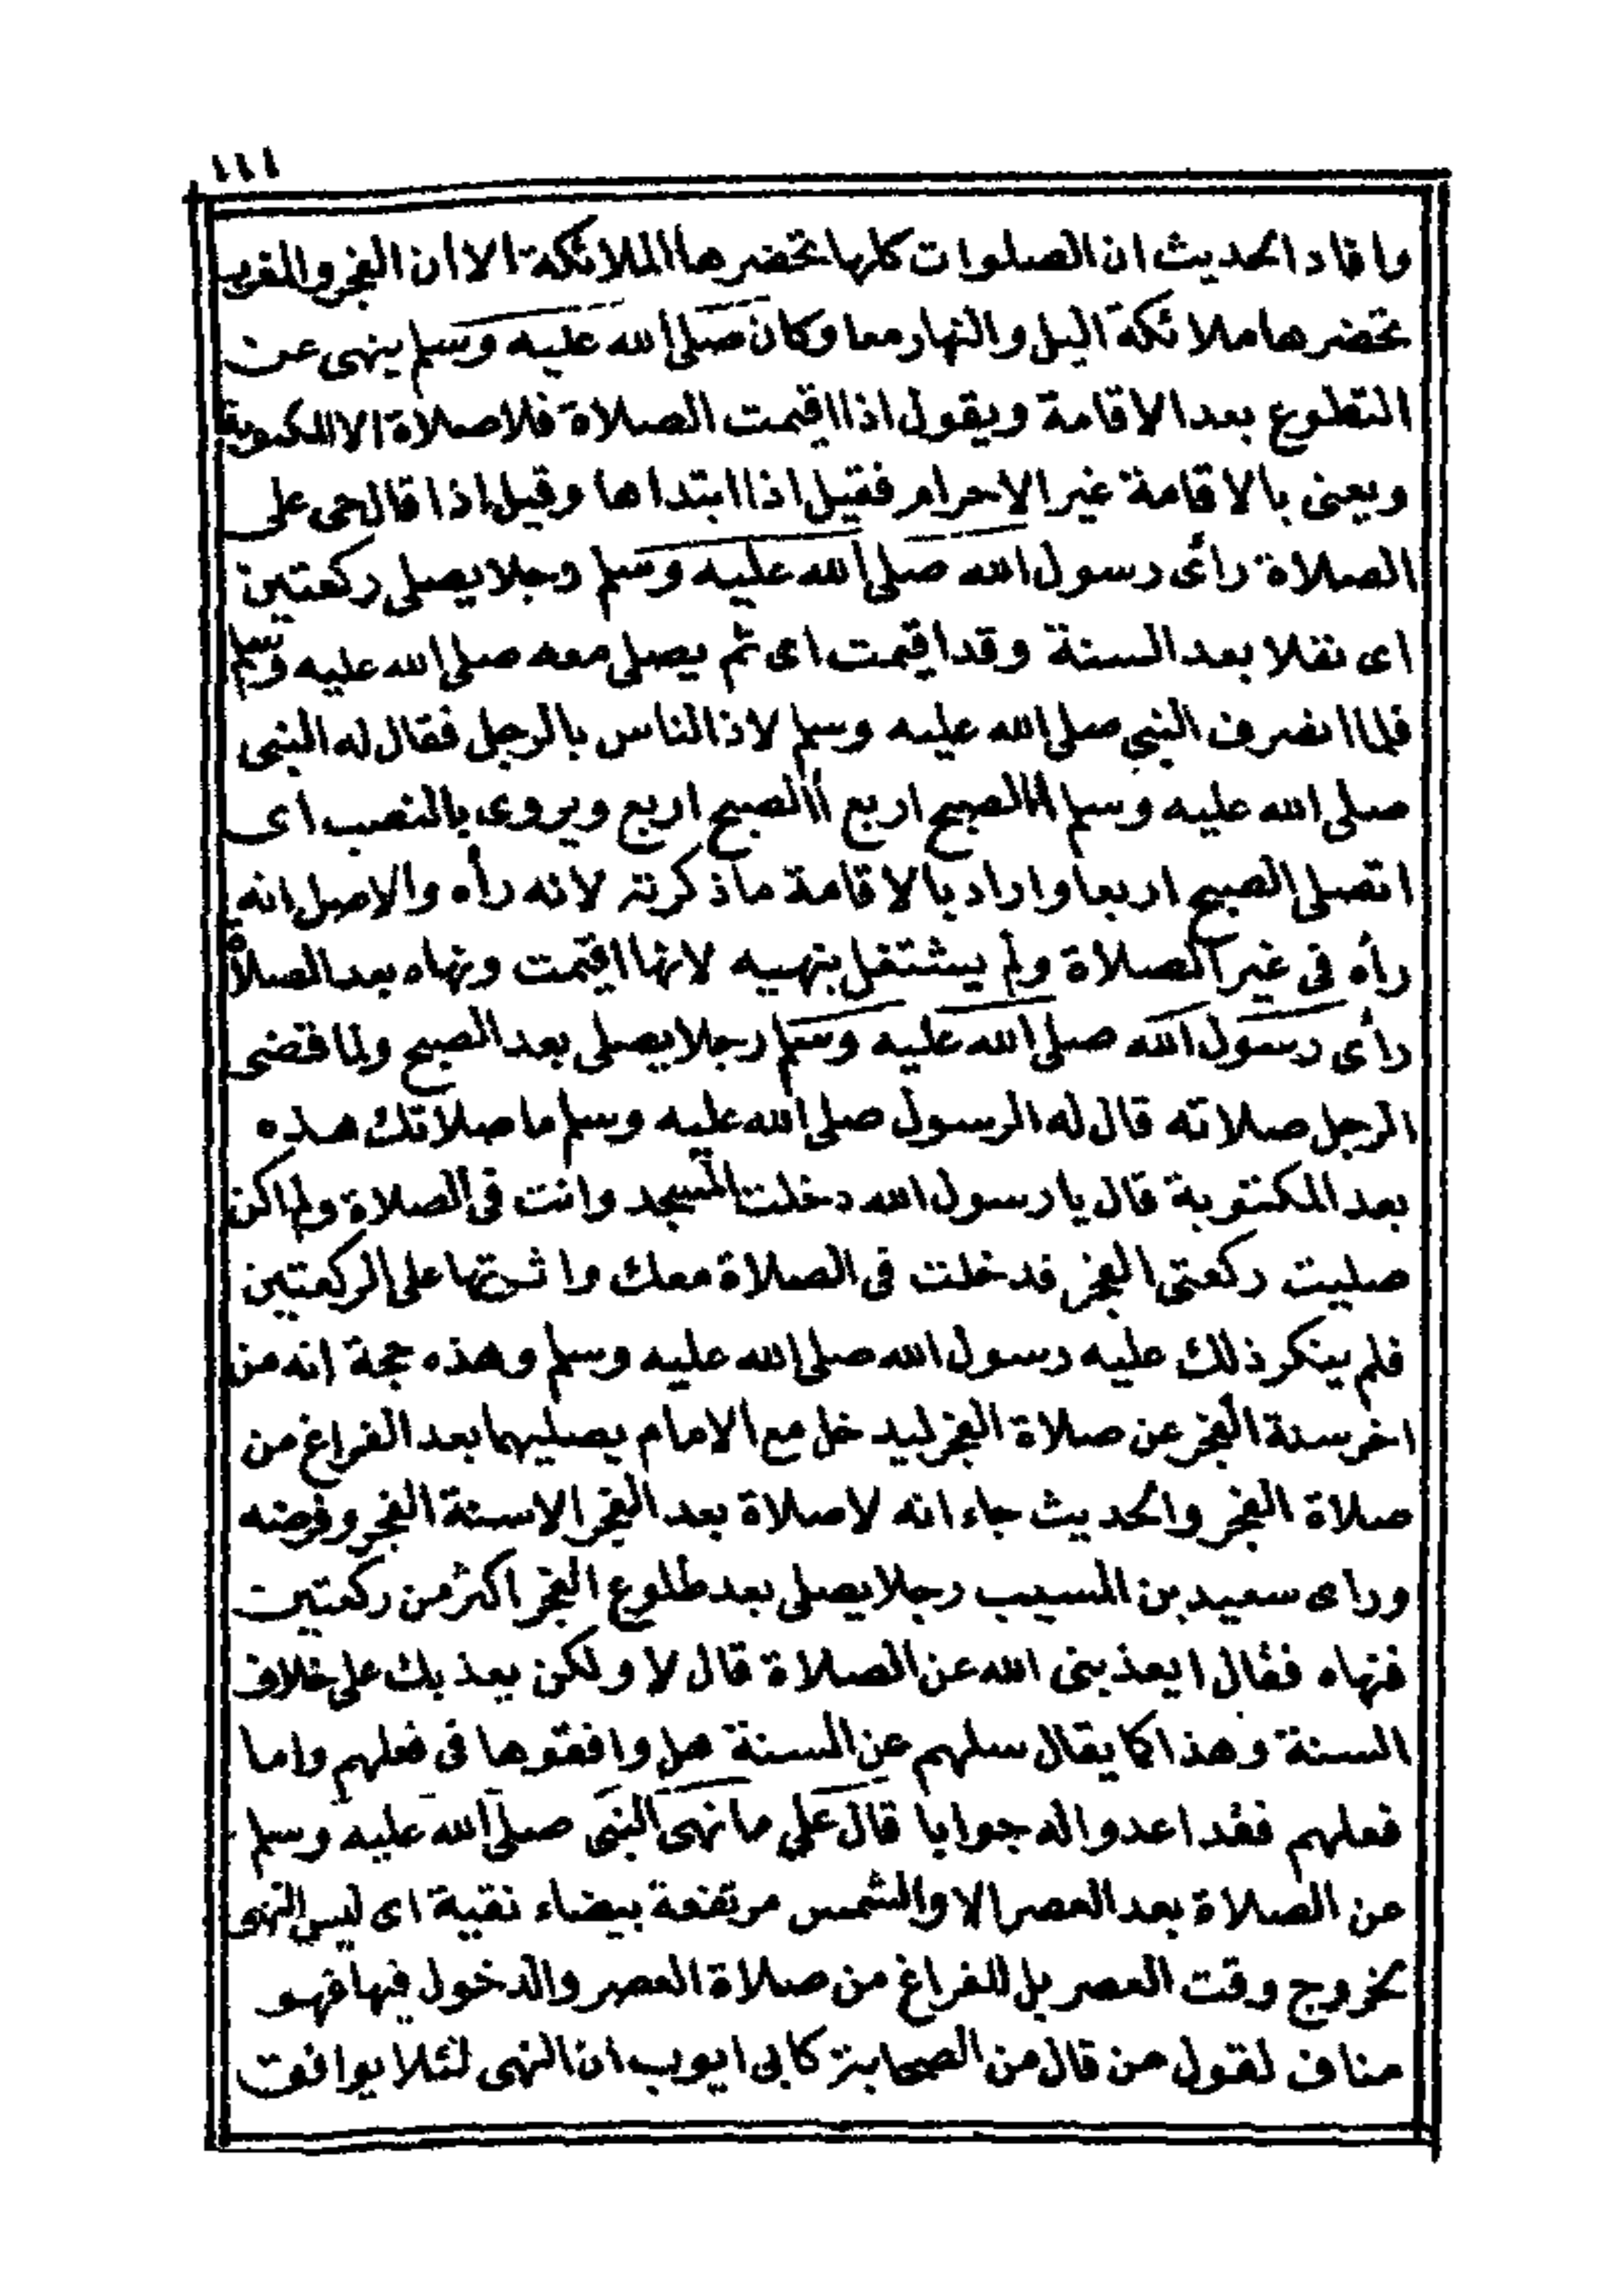 ١١١
وافاد الحديث ان الصلوات كلها تحضرها الملائكة الا ان الفجر والمغرب
تحضرها ملائكة اليل والنهار معا وكان صلى الله عليه وسلم ينهى عن
التطوع بعد الاقامة ويقول اذا اقيمت الصلاة فلا صلاة الا المكتوبة
ويعنى بالاقامة غير الاحرام فقيل اذا ابتداها وقيل اذا قال حى على
الصلاة رأى رسول الله صلى الله عليه وسلم رجلا يصلى ركعتين
اى نفلا بعد السنة وقد اقيمت اى ثم يصلى معه صلى الله عليه وسلم
فلما انصرف النبي صلى الله عليه وسلم لاذ الناس بالرجل فقال له النبى
صلى الله عليه وسلم االصبح اربع االصبح اربع ويروى بالنصب اى
اتصلى الصبح اربعا واراد بالاقامة ما ذكرته لانه رأه والاصل انه
رأه فى غير الصلاة ولم يشتغل بنهيه لانها اقيمت ونهاه بعد الصلاة
رأى رسول الله صلى الله عليه وسلم رجلا يصلى بعد الصبح ولما قضى
الرجل صلاته قال له الرسول صلى الله عليه وسلم ما صلاتك هذه
بعد المكتوبة قال يا رسول الله دخلت المسجد وانت فى الصلاة ولم اكن
صليت ركعتى الفجر فدخلت فى الصلاة معك واثرتها على الركعتين
فلم ينكر ذلك عليه رسول الله صلى الله عليه وسلم وهذه حجة انه من
اخر سنة الفجر عن صلاة الفجر ليدخل مع الامام يصليهما بعد الفراغ من
صلاة الفجر والحديث جاء انه لا صلاة بعد الفجر الا سنة الفجر وفرضه
وراى سعيد بن المسيب رجلا يصلى بعد طلوع الفجر اكثر من ركعتين
فنهاه فقال ايعذبنى الله عن الصلاة قال لا ولكن يعذبك على خلاف
السنة وهذا كما يقال سلهم عن السنة هل وافقوها فى فعلهم واما
فعلهم فقد اعدوا له جوابا قال علي ما نهى النبى صلى الله عليه وسلم
عن الصلاة بعد العصر الا والشمس مرتفعة بيضاء نقية اى ليس النهى
لخروج وقت العصر بل للفراغ من صلاة العصر والدخول فيها فهو
مناف لقول من قال من الصحابة كابى ايوب ان النهى لئلا يوافق